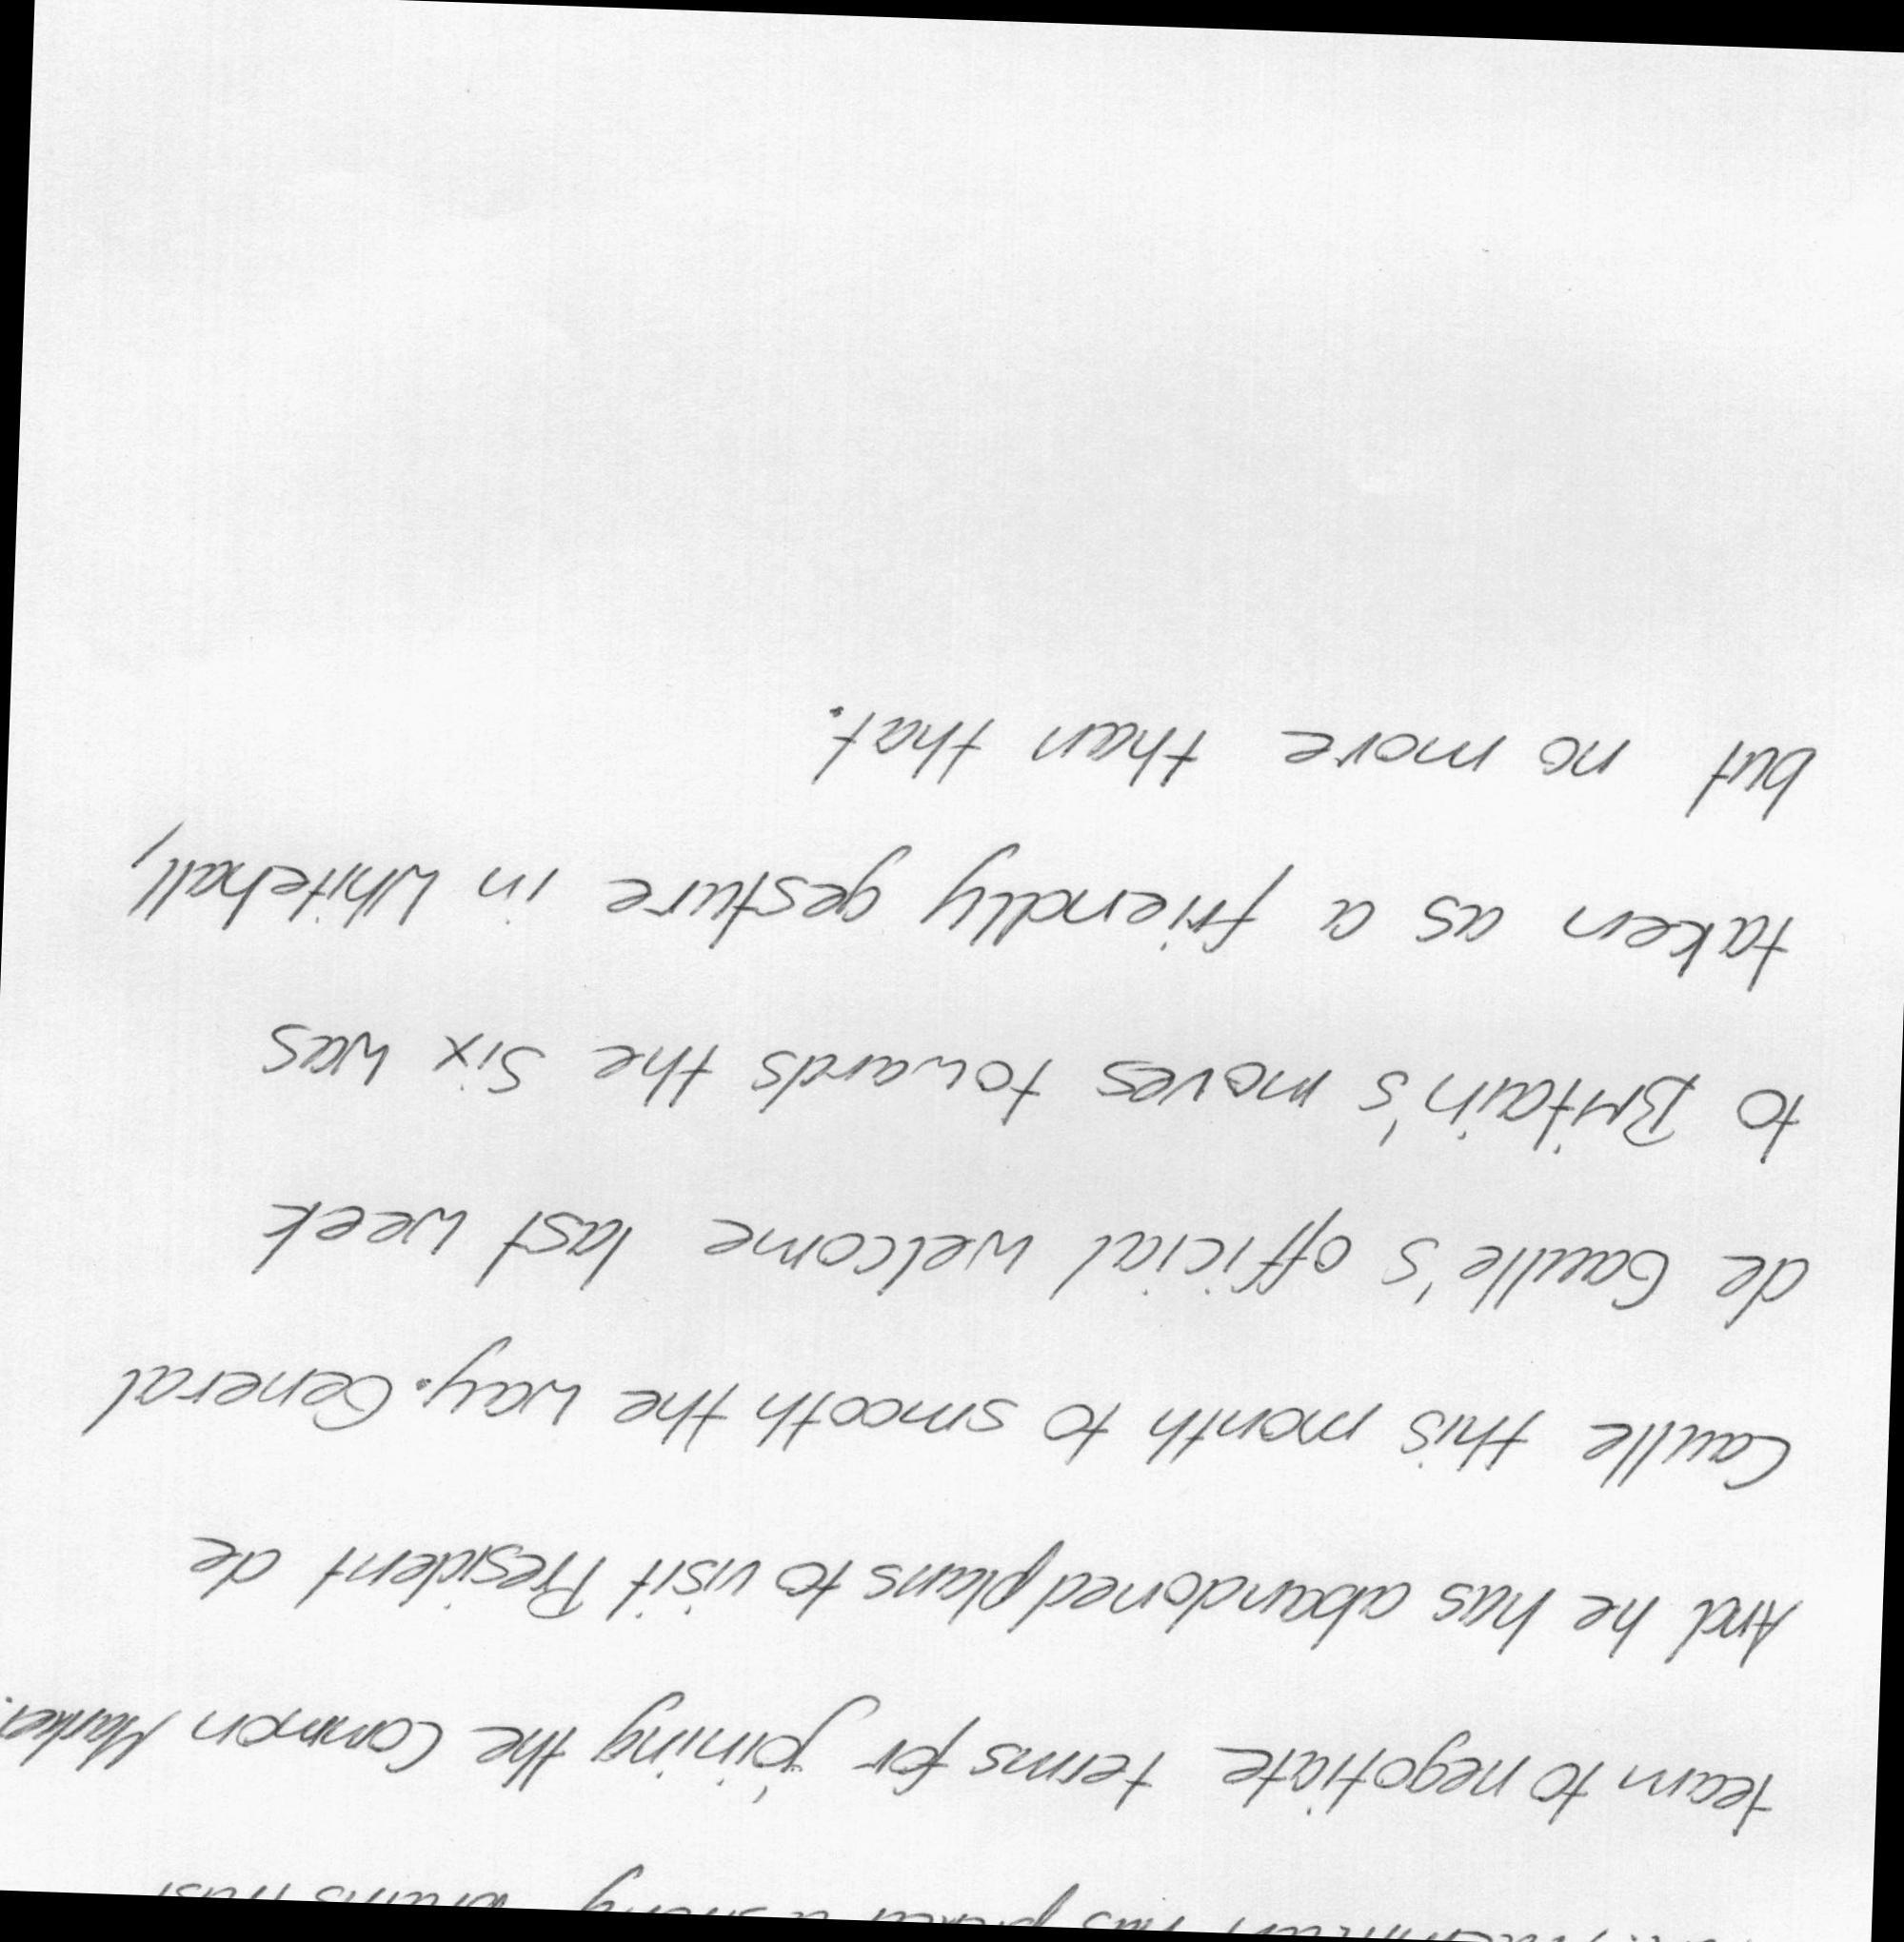 team to negotiate terms for joining the Common Market.
And he has abandoned plans to visit President de
Gaulle this month to smooth the way. General
de Gaulle's official welcome last week
to Britain's moves towards the Six was
taken as a friendly gesture in Whitehall,
but no more than that.